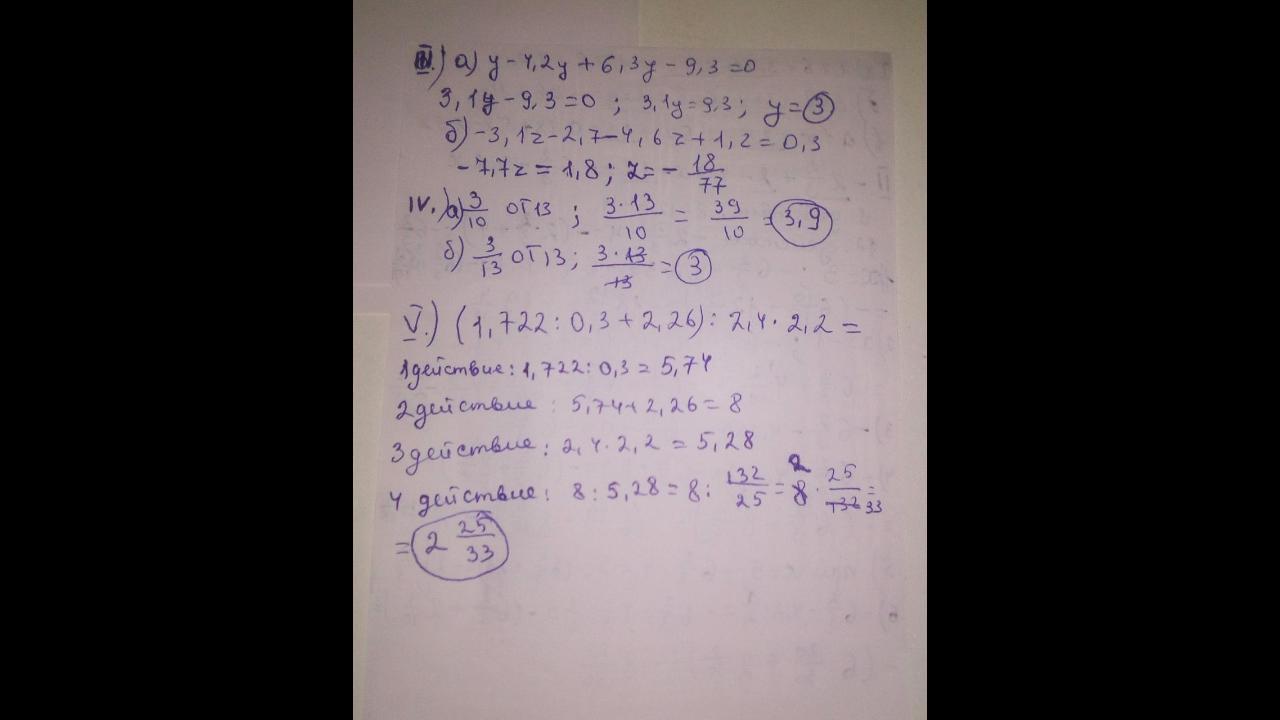 III.) а) y - 4,2y + 6,3y - 9,3 = 0
3,1y - 9,3 = 0 ; 3,1y = 9,3 ; y = 3
б) -3,1z - 2,7 - 4,6z + 1,2 = 0,3
-7,7z = 1,8 ; z = - 18/77
IV.) а) 3/10 от 13 ; 3·13/10 = 39/10 = 3,9
б) 3/13 от 13 ; 3·13/13 = 3
V.) (1,722 : 0,3 + 2,26) : 2,4 · 2,2 =
1 действие : 1,722 : 0,3 = 5,74
2 действие : 5,74 + 2,26 = 8
3 действие : 2,4 · 2,2 = 5,28
4 действие : 8 : 5,28 = 8 : 132/25 = 8 2 · 25/132 33 =
= 2 25/33